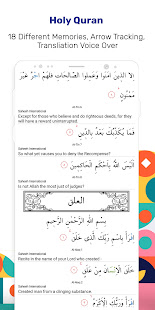 Holy Quran
18 Different Memories, Arrow Tracking,
Transliation Voice Over
إلا الذين آمنوا وعملوا الصالحات فلهم أجر غير
ممنون
Saheeh International
Except for those who believe and do righteous deeds, for they
will have a reward uninterrupted.
فما يكذبك بعد بالدين
Saheeh International
So what yet causes you to deny the Recompense?
أليس الله بأحكم الحاكمين
Saheeh International
Is not Allah the most just of judges?
العلق
بسم الله الرحمن الرحيم
اقرأ باسم ربك الذي خلق
Saheeh International
Recite in the name of your Lord who created
خلق الإنسان من علق
Saheeh International
Created man from a clinging substance.
اقرأ وربك الأكرم